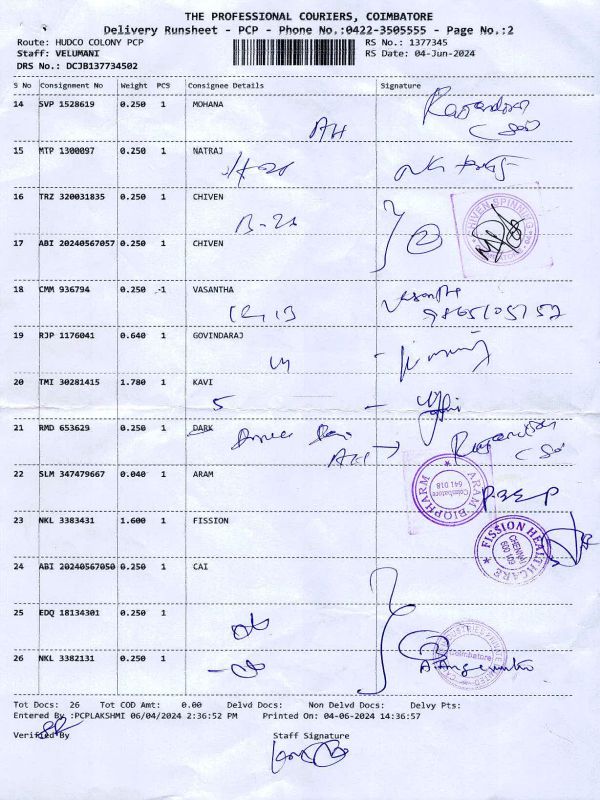 THE PROFESSIONAL COURIERS, COIMBATORE
Delivery Runsheet - PCP - Phone No.:0422-3505555 - Page No.:2
Route: HUDCO COLONY PCP RS No.: 1377345
Staff: VELUMANI RS Date: 04-Jun-2024
DRS No.: DCJB137734502
S No Consignment No Weight PCS Consignee Details Signature
14 SVP 1528619 0.250 1 MOHANA
AH
15 MTP 1300097 0.250 1 NATRAJ
16 TRZ 320031835 0.250 1 CHIVEN
CHIVEN SPINNING
17 ABI 20240567057 0.250 1 CHIVEN
18 CMM 936794 0.250 -1 VASANTHA
Vasantha
9865105152
19 RJP 1176041 0.640 1 GOVINDARAJ
20 TMI 30281415 1.780 1 KAVI
5
21 RMD 653629 0.250 1 DARK
AH
22 SLM 347479667 0.040 1 ARAM
ARAM BIOPHARM
Coimbatore
641 018
23 NKL 3383431 1.600 1 FISSION
FISSION HEALTHCARE
CHENNAI
600 109
24 ABI 20240567050 0.250 1 CAI
25 EDQ 18134301 0.250 1
26 NKL 3382131 0.250 1
Coimbatore
Tot Docs: 26 Tot COD Amt: 0.00 Delvd Docs: Non Delvd Docs: Delvy Pts:
Entered By :PCPLAKSHMI 06/04/2024 2:36:52 PM Printed On: 04-06-2024 14:36:57
Verified By Staff Signature